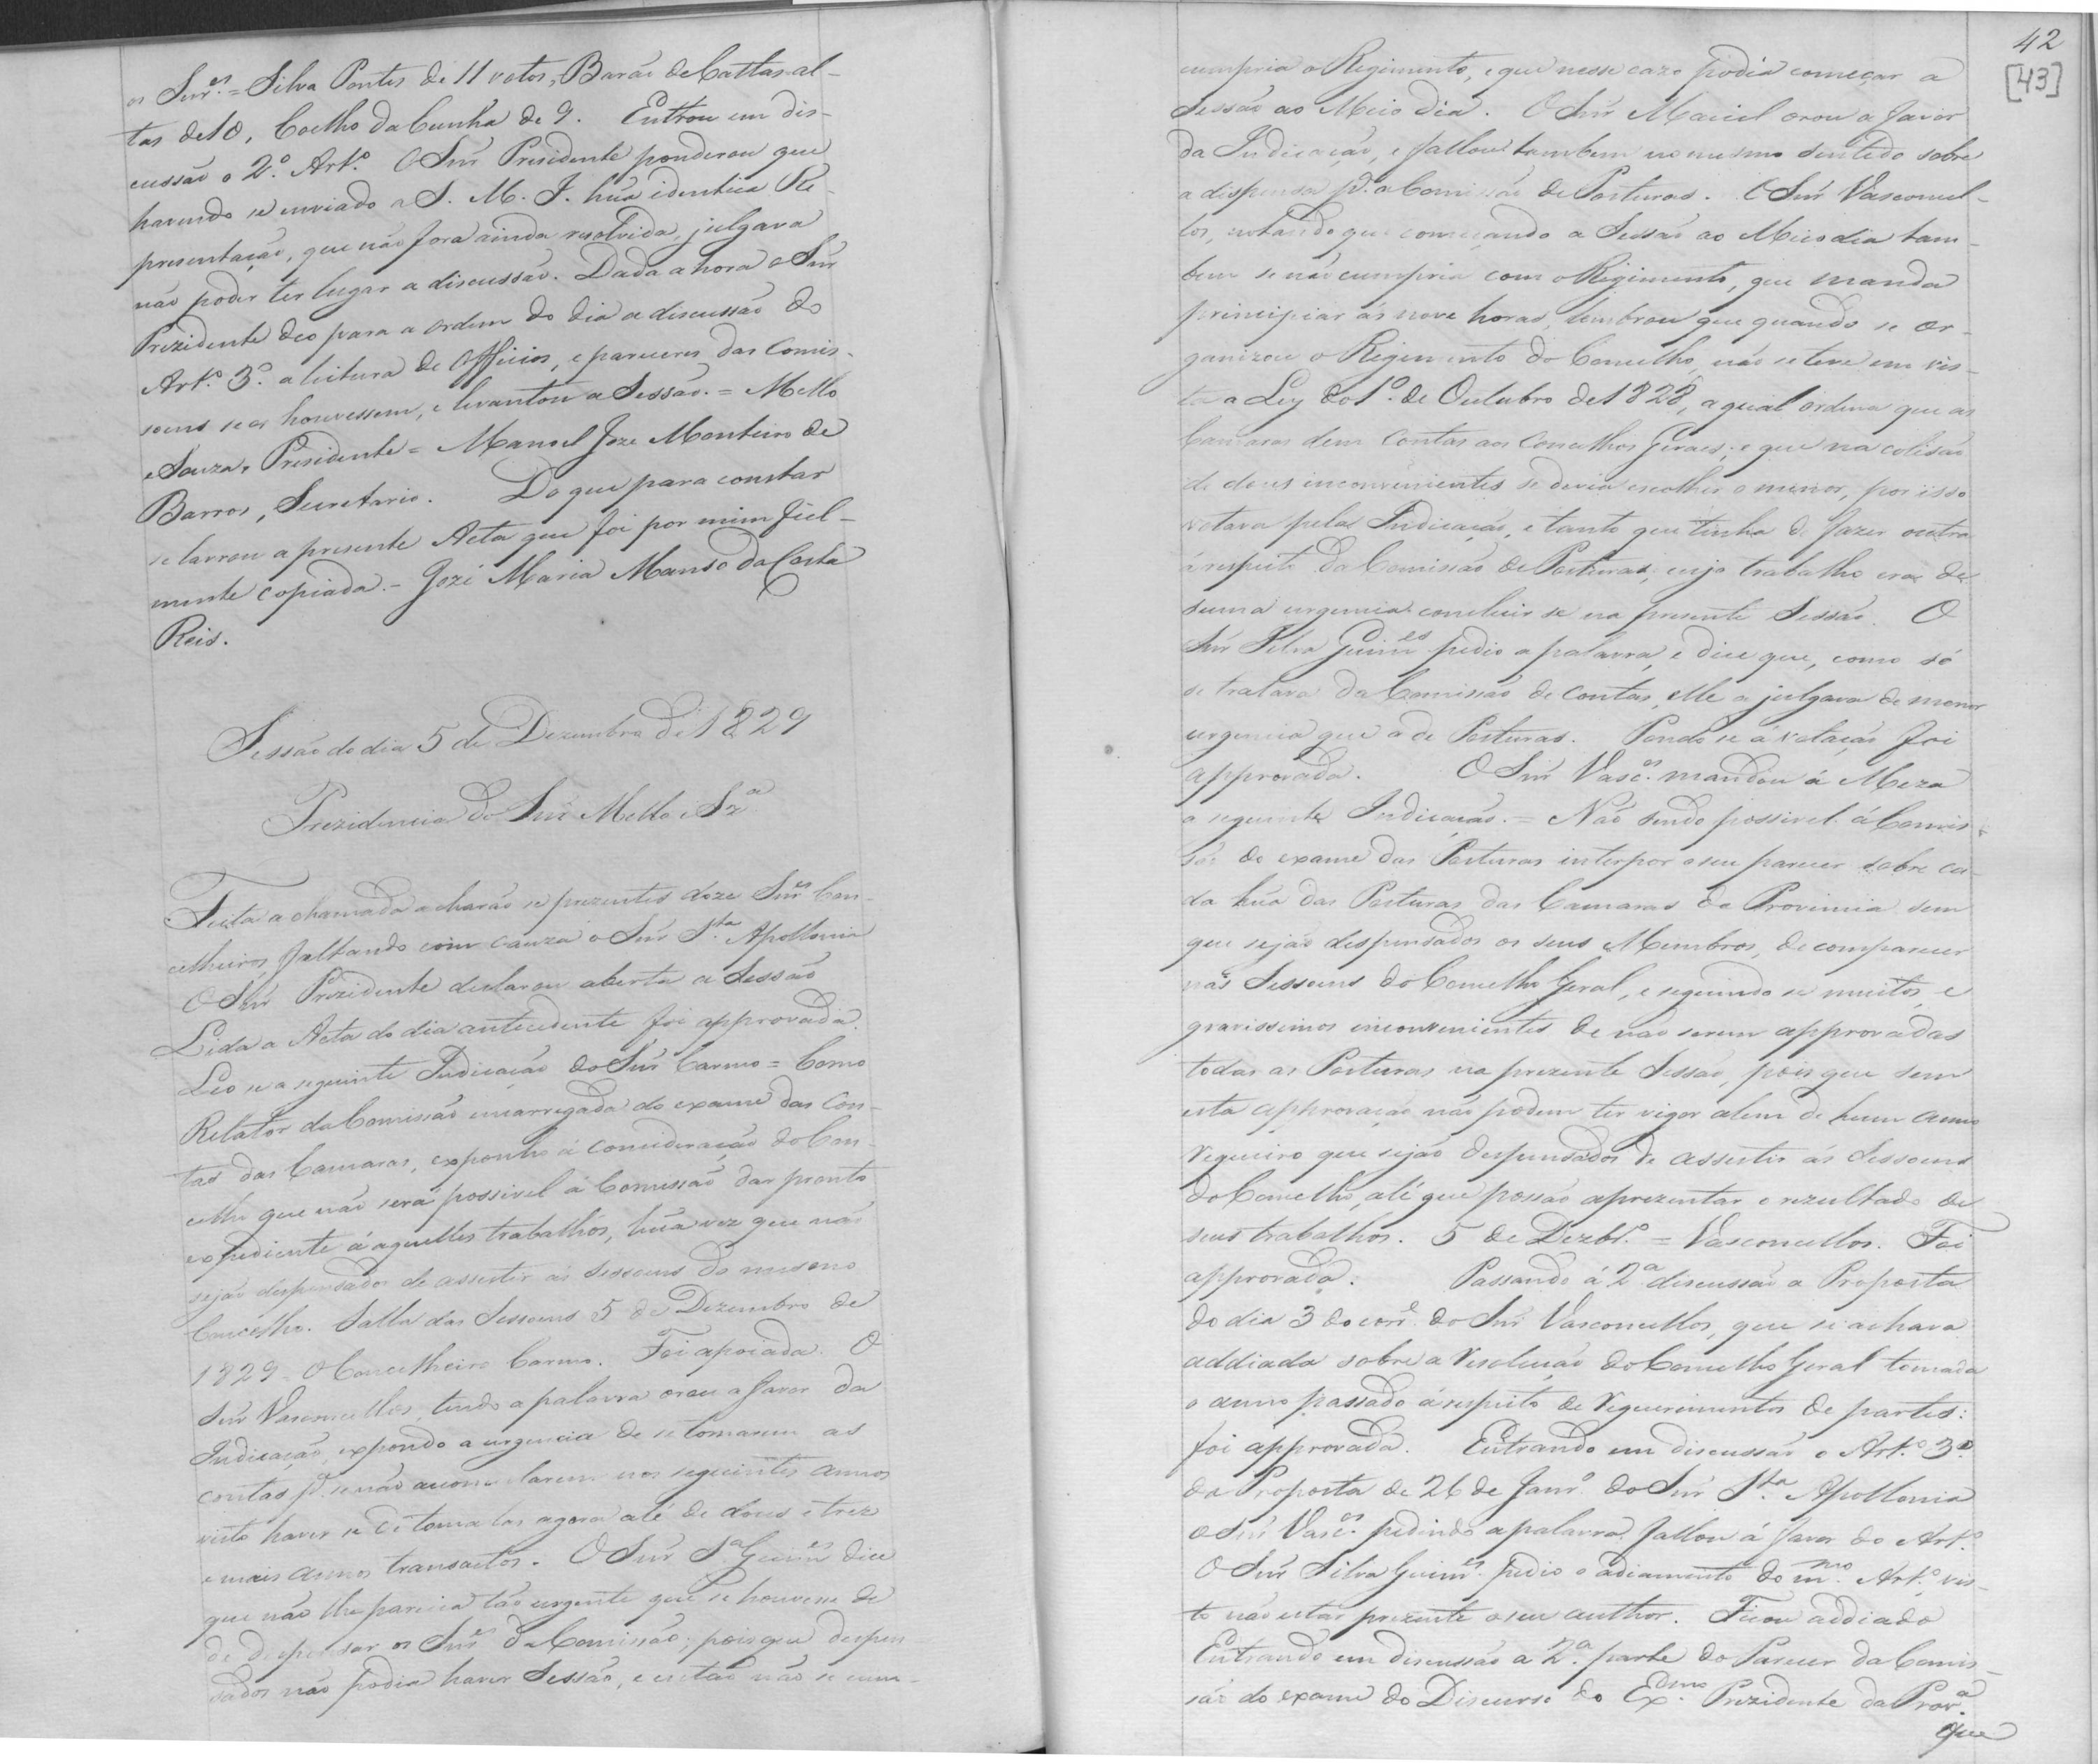 os Snr.es = Silva Pontes de 11 votos, Barão de Cattas al-
tas de 10, Coelho da Cunha de 9. Entrou em dis-
cussão o 2º. Artº. O Snr Presidente ponderou que
havendo se enviado a S. M. I. hũa identica Re-
presentação, que não fora ainda resolvida, julgava
não poder ter lugar a discussão. Dada a hora o Snr
Prezidente deo para a ordem do dia a discussão do
Artº. 3º. a leitura de Officios, e pareceres das Comis-
soens se os houvessem, e levantou a Sessão. = Mello
e Souza, Presidente = Manoel Joze Monteiro de
Barros, Secretario. Do que para constar
se lavrou a presente Acta que foi por mim fiel-
mente copiada. - Jozé Maria Manso da Costa
Reis.
Sessão do dia 5 de Dezembro de 1829
Prezidencia do Snr Mello e Sz.a
Feita a chamada acharão se prezentes doze Snr.es Con-
celheiros, faltando com cauza o Snr S.ta Apollonia
O Snr Prezidente declarou aberta a Sessão
Lida a Acta do dia antecedente foi approvada.
Leo se a seguinte Indicação do Snr Carmo = Como
Relator da Comissão encarregada do exame das Con-
tas das Camaras, exponho á consideração do Con-
celho que não será possivel á Comissão dar prompto
expediente á aquelles trabalhos, hũa vez que não
sejão dispensados de assestir ás Sessoens do mesmo
Concelho. Salla das Sessoens 5 de Dezembro de
1829 - O Concelheiro Carmo. Foi apoiada. O
Snr Vasconcellos, tendo a palavra orou a favor da
Indicação, expondo a urgencia de se tomarem as
contas pª. se não accomularem nos seguintes annos
visto haver se de tomalas agora até de dous e trez
e mais annos transactos. O Snr Sª Guim.es dice
que não lhe parecia tão urgente que se houvesse de
de dispensar os Snr.es da Comissão; pois que dispen-
sados não podia haver Sessão, e então não se cum-
42
[43]
cumpria o Regimento, e que nesse cazo podia começar a
Sessão ao Meio dia. O Snr Maciel orou a favor
da Indicação, e fallou tambem no mesmo sentido sobre
a dispensa pª. a Comissão de Posturas. O Snr Vasconcel-
los, notando que começando a Sessão ao Meio dia tam-
bem se não cumpria com o Regimento, que manda
principiar ás nove horas, lembrou que quando se or-
ganizou o Regimento do Concelho, não se teve em vis-
ta a Ley do 1º. de Outubro de 1828, a qual ordena que as
Camaras dem Contas aos Concelhos Geraes; e que na colisão
de dous inconvenientes se devia escolher o menor, por isso
votava pela Indicação, e tanto que tinha de fazer outra
á respeito da Comissão de Posturas, cujo trabalho era de
suma urgencia concluir se na presente Sessão. O
Snr Silva Guim.es pedio a palavra, e dice que, como só
se tratava da Comissão de Contas, elle a julgava de menor
urgencia que a de Posturas. Pondo se á votação foi
approvada. O Snr Vasc.os mandou á Meza
a seguinte Indicação. = Não sendo possivel á Comis-
são do exame das Posturas interpor o seu parecer sobre ca-
da hũa das Posturas das Camaras da Provincia sem
que sejão dispensados os seus Membros, de comparecer
nas Sessoens do Concelho Geral, e seguindo se muitos, e
gravissimos inconvenientes de não serem approvadas
todas as Posturas na prezente Sessão, pois que sem
esta approvação não podem ter vigor alem de hum anno
requeiro que sejão dispensados de assestir ás Sessoens
do Concelho, até que possão aprezentar o rezultado de
seus trabalhos. 5 de Dezbr.º = Vasconcellos. Foi
approvada. Passando á 2.a discussão a Proposta
do dia 3 do corr.e do Snr Vasconcellos, que se achava
addiada sobre a Resolução do Concelho Geral tomada
o anno passado á respeito de requerimentos de partes:
foi approvada. Entrando em discussão o Artº. 3º.
da Proposta de 26 de Janr.º do Snr S.ta Apollonia
o Snr Vasc.os pedindo a palavra, fallou á favor do Artº.
O Snr Silva Guim.es pedio o adiamento do m.mo Artº. vis-
to não estar prezente o seu author. Ficou addiado
Entrando em discussão a 2.a parte do Parecer da Comis-
são do exame do Discurso do Ex.dmo Prezidente da Prov.a
que